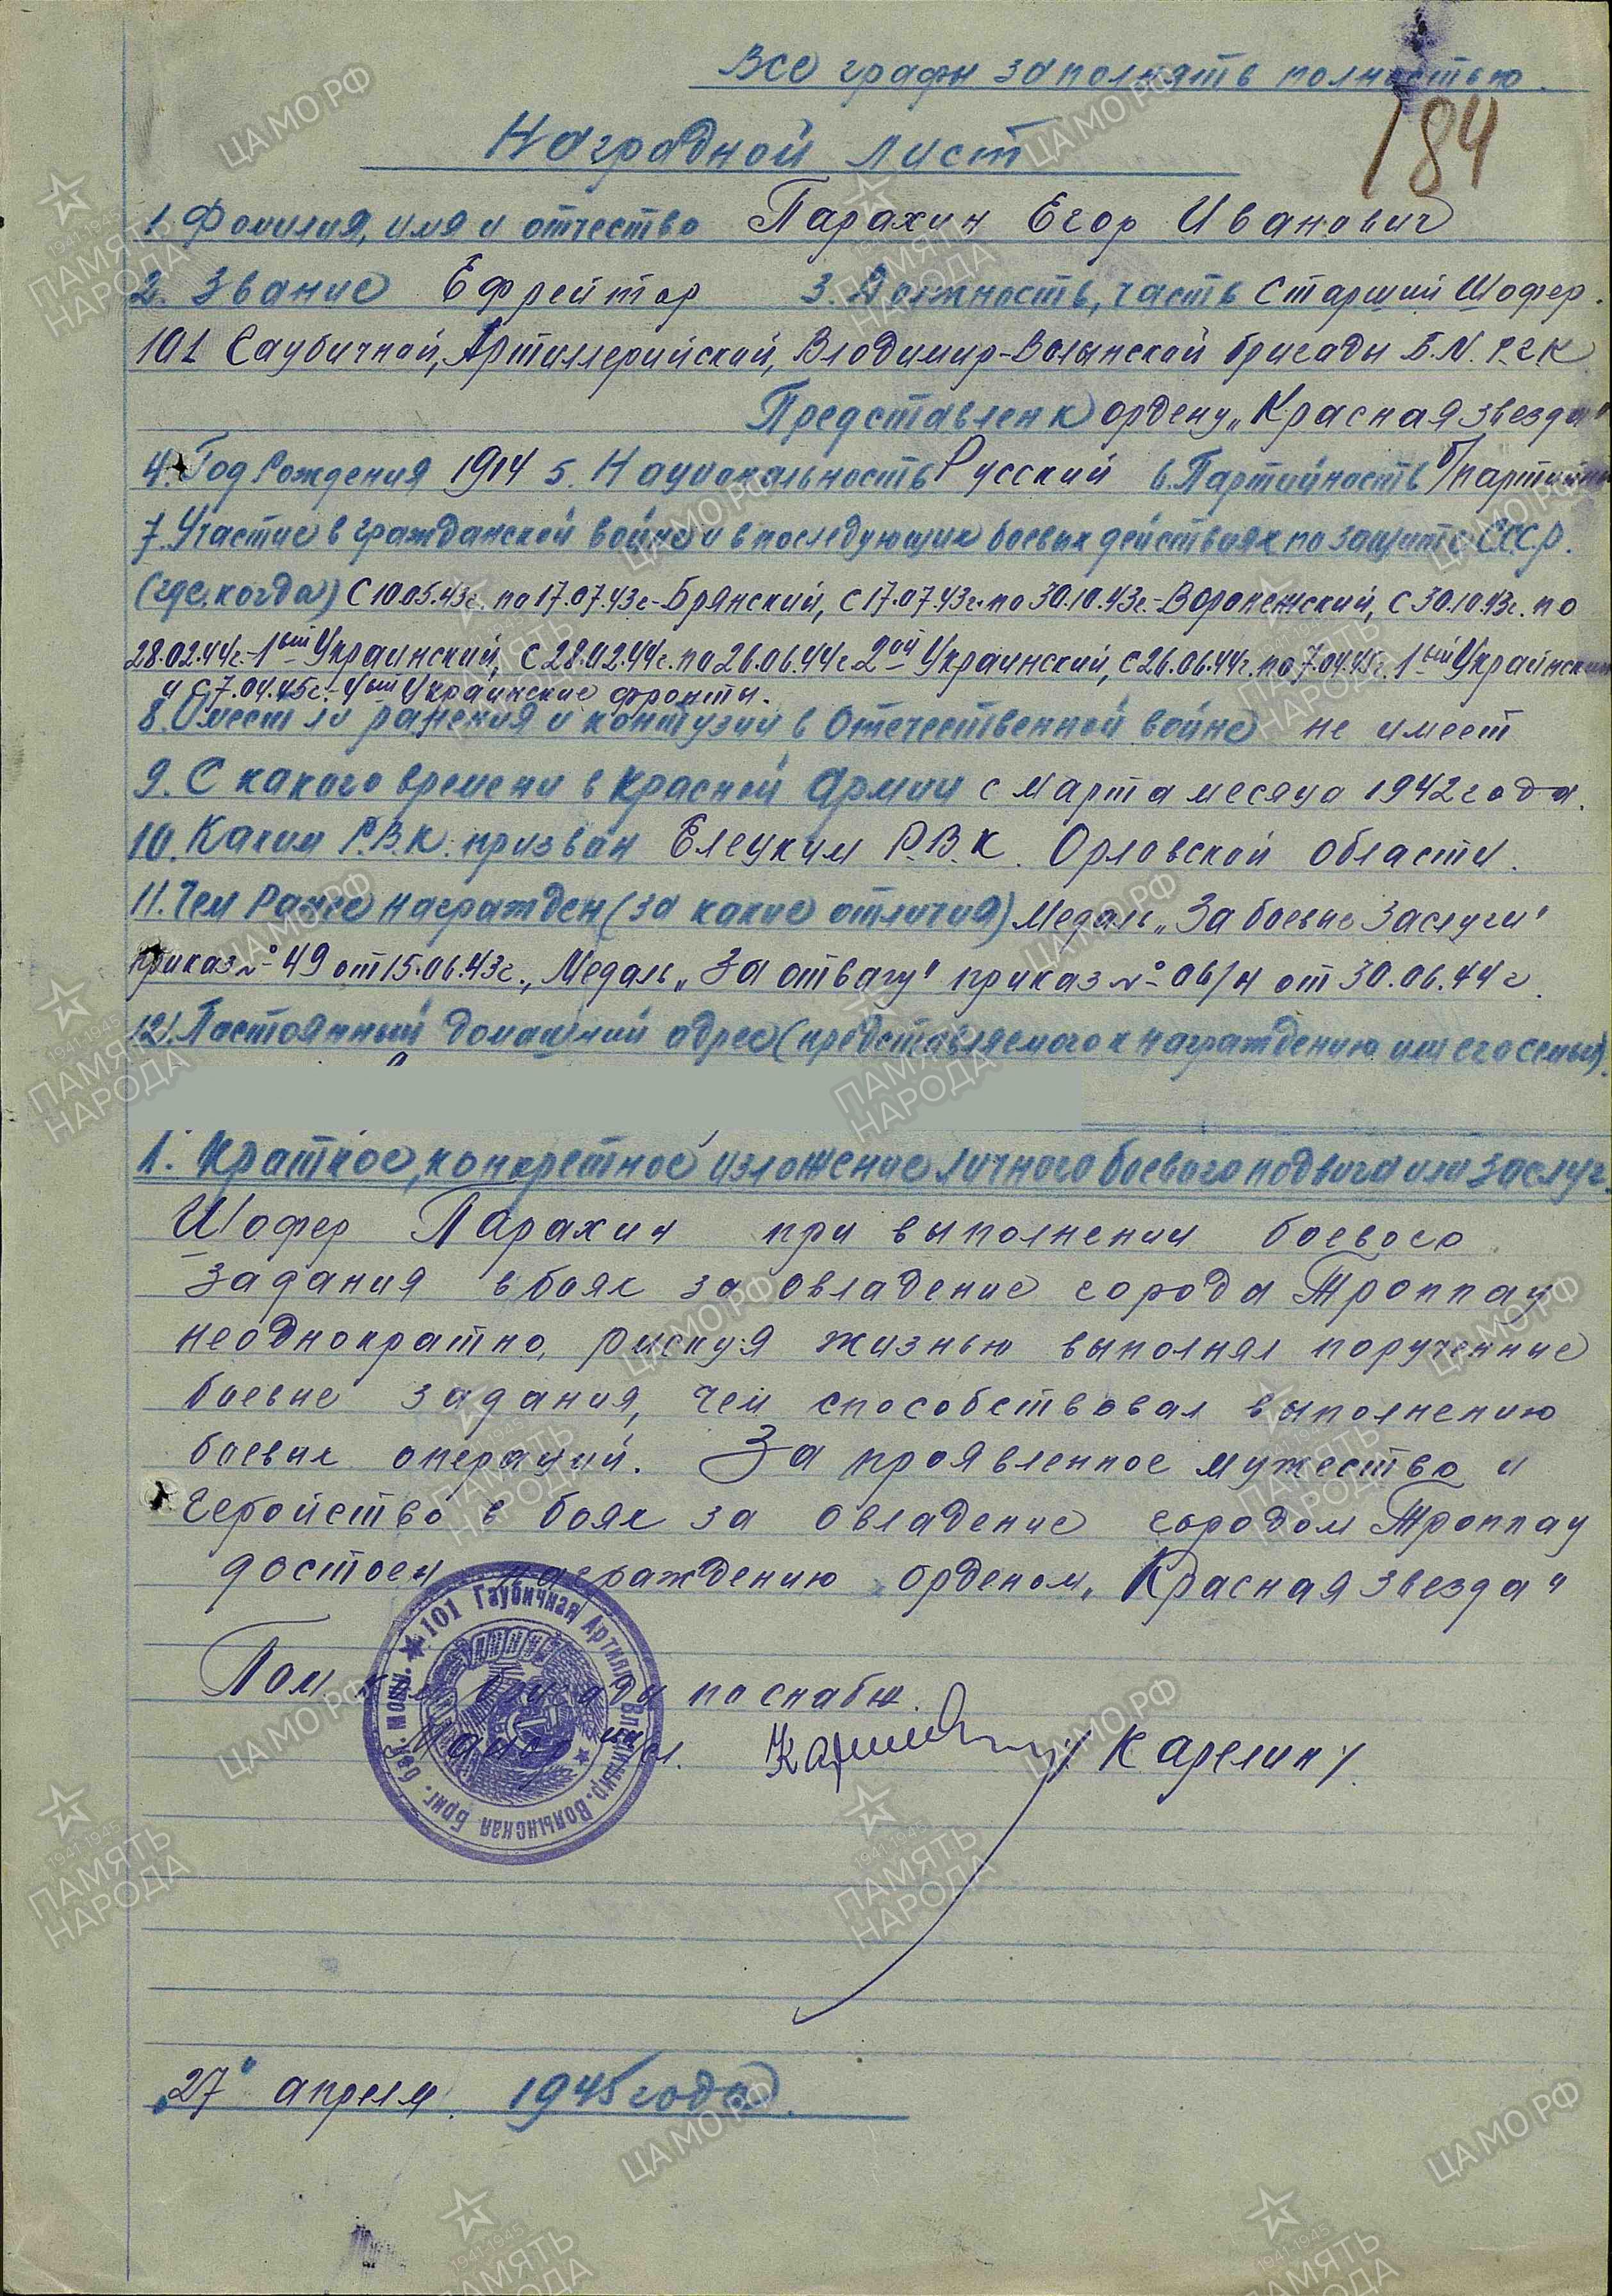 Все графы заполнять полностью.
184
Наградной лист
1. Фамилия, имя и отчество Парахин Егор Иванович
2. Звание Ефрейтор 3. Должность, часть Старший Шофер.
101 Гаубичной, Артиллерийской, Владимир-Волынской бригады Б.М. Р.Г.К.
Представлен к ордену „Красная звезда"
4. Год Рождения 1914 5. Национальность Русский 6. Партийность б/партийный
7. Участие в гражданской войне и в последующих боевых действиях по защите СССР.
(где, когда) С 10.05.43г. по 17.07.43г.-Брянский, с 17.07.43г. по 30.10.43г.-Воронежский, с 30.10.43г. по
28.02.44г.-1ый Украинский, с 28.02.44г. по 26.06.44г. 2ой Украинский, с 26.06.44г. по 7.04.45г. 1ый Украинский
и с 7.04.45г.-4ый Украинские фронты.
8. Имеет ли ранения и контузии в Отечественной войне не имеет
9. С какого времени в Красной Армии с марта месяца 1942 года.
10. Каким Р.В.К. призван Елецким Р.В.К. Орловской области.
11. Чем Ранее награжден (за какие отличия) Медаль „За боевые заслуги"
приказ № 49 от 15.06.43г., Медаль „За отвагу" приказ № 06/н от 30.06.44г.
12. Постоянный домашний адрес (представляемого к награждению или его семьи).
1. Краткое, конкретное изложение личного боевого подвига или заслуг.
Шофер Парахин при выполнении боевого
задания в боях за овладение города Троппау
неоднократно, рискуя жизнью выполнял порученные
боевые задания, чем способствовал выполнению
боевых операций. За проявленное мужество и
геройство в боях за овладение городом Троппау
достоен награждению орденом „Красная звезда"
Пом. ком. бригады по снабж.
Майор
/Карелин/.
101 Гаубичная Артилл. Владимир.-Волынская Бриг. бол. мощ.
„27" апреля 1945 года.
ЦАМО РФ
1941-1945
ПАМЯТЬ
НАРОДА